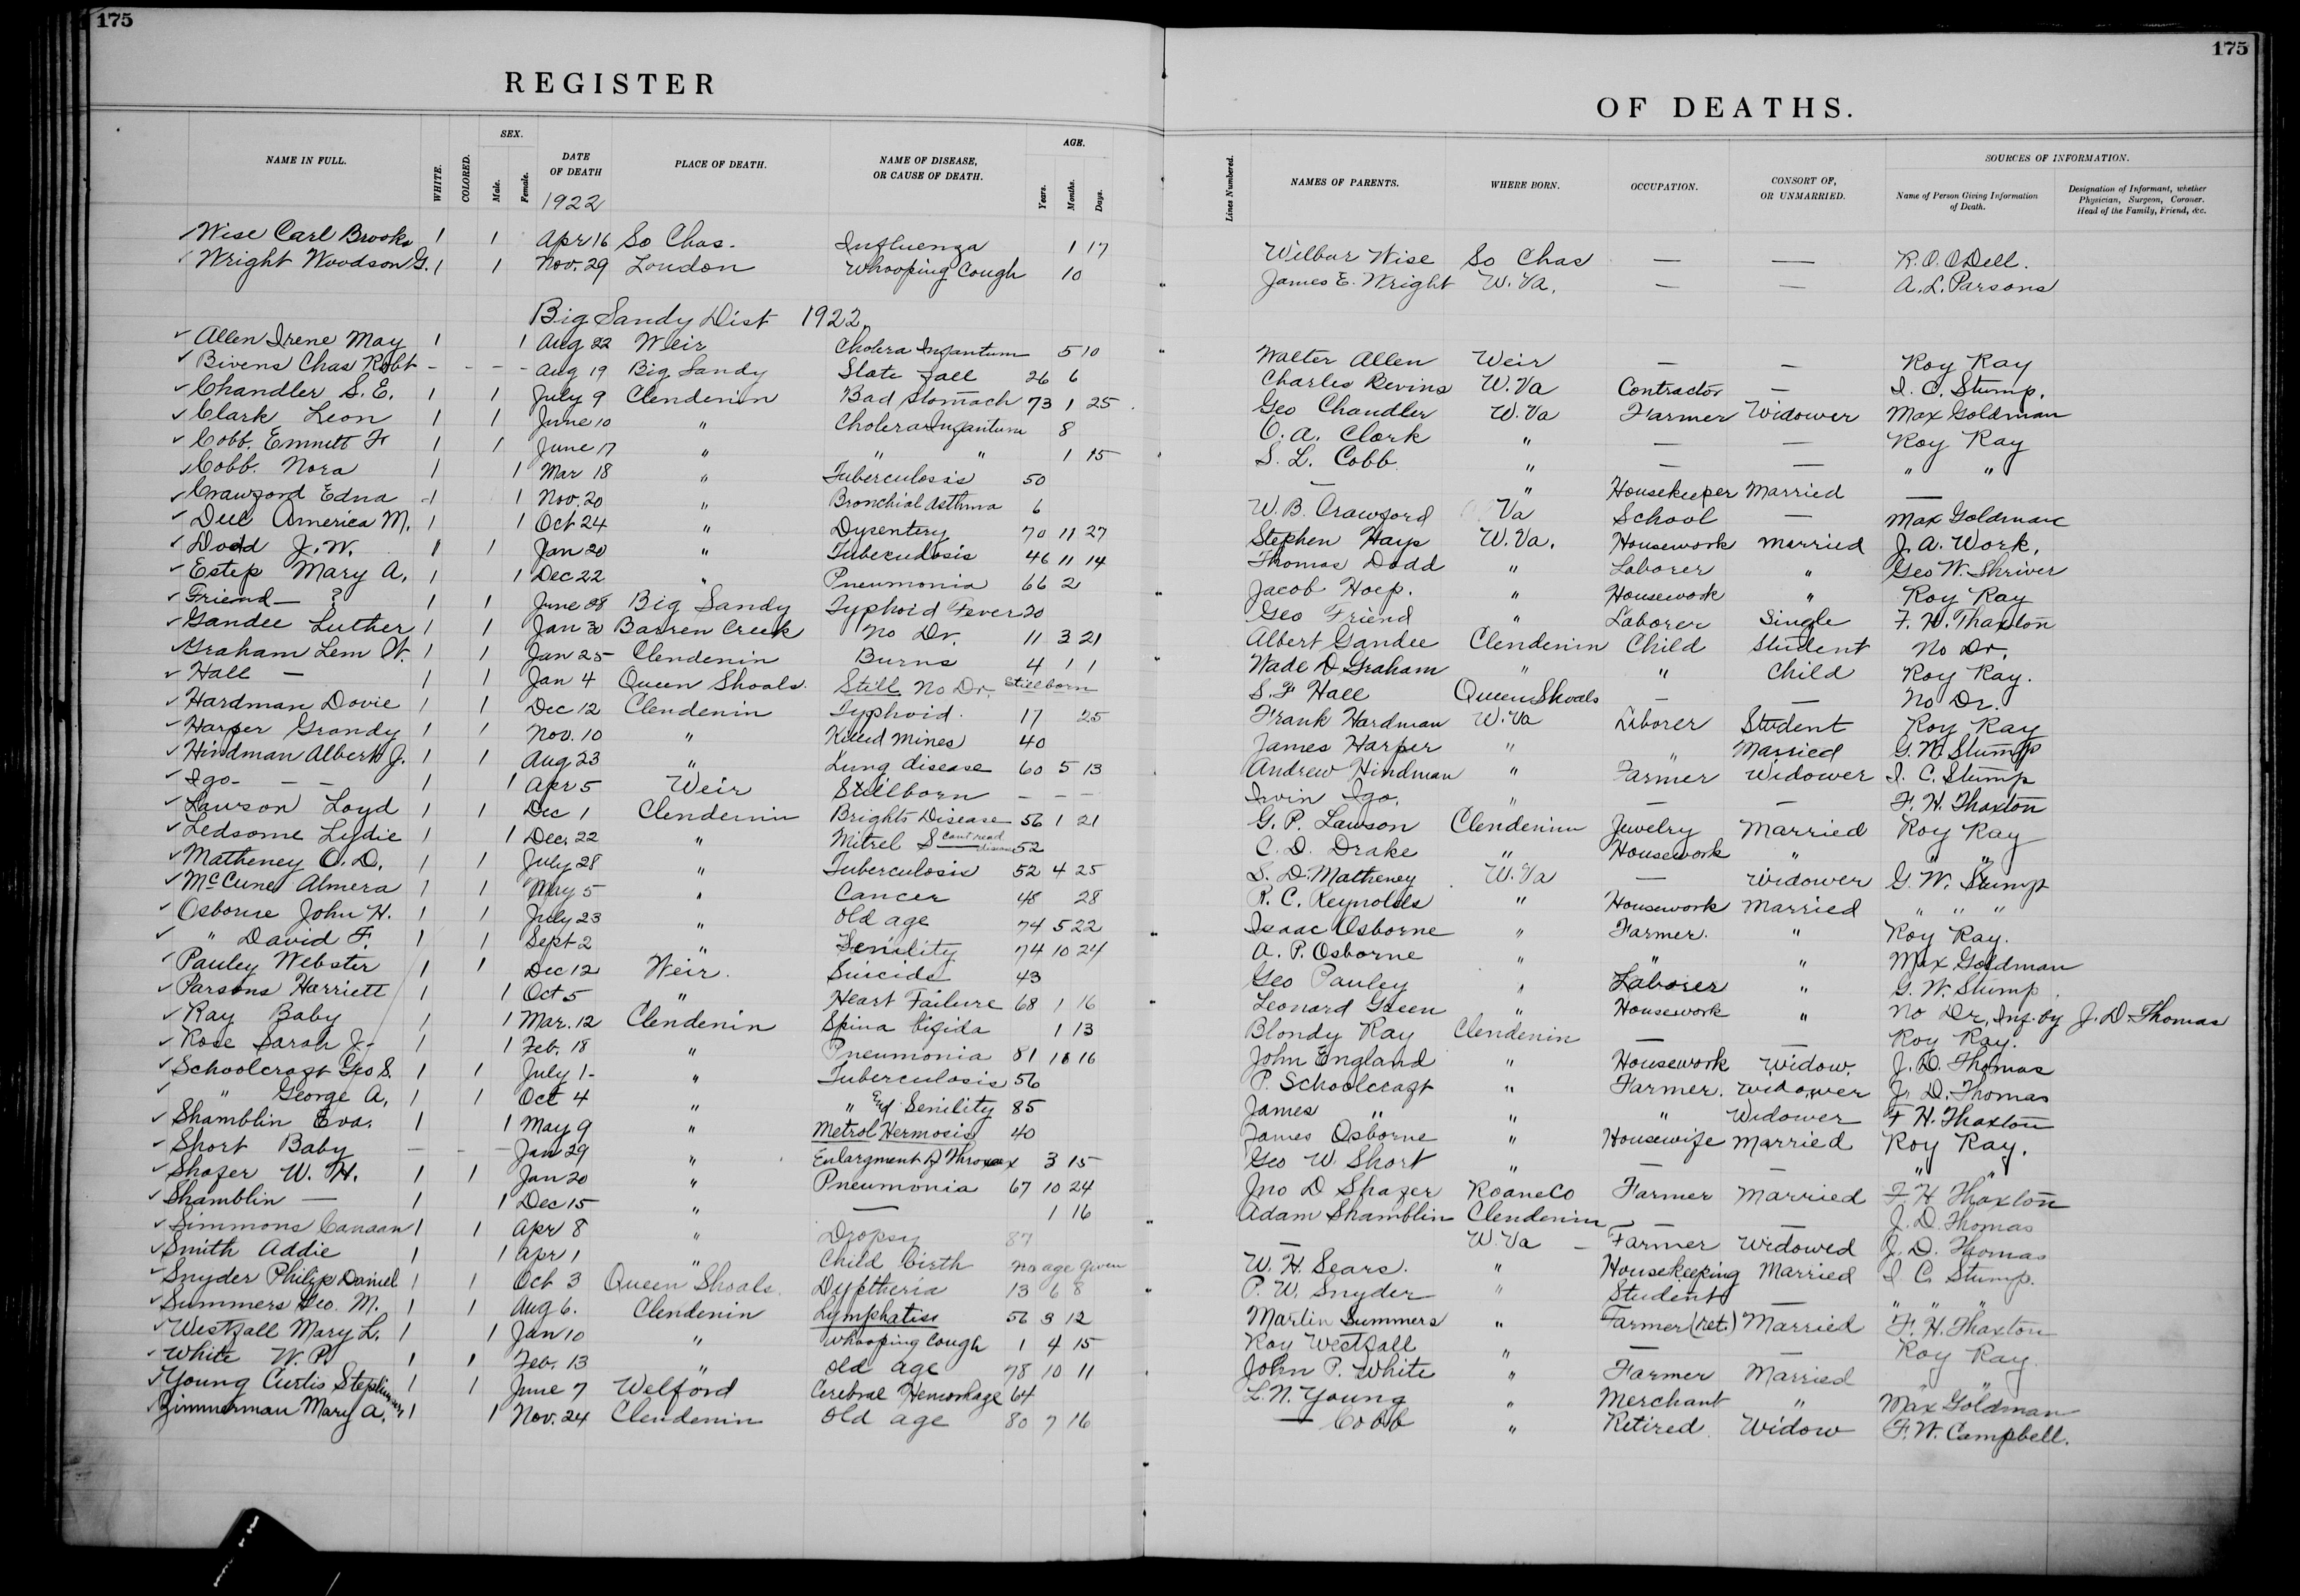 175
175
REGISTER
OF DEATHS.
NAME IN FULL. WHITE. COLORED. SEX. Male. Female. DATE OF DEATH PLACE OF DEATH. NAME OF DISEASE, OR CAUSE OF DEATH. AGE. Years. Months. Days. Lines Numbered. NAMES OF PARENTS. WHERE BORN. OCCUPATION. CONSORT OF, OR UNMARRIED. SOURCES OF INFORMATION. Name of Person Giving Information of Death. Designation of Informant, whether Physician, Surgeon, Coroner. Head of the Family, Friend, &c.
1922
✓ Wise Carl Brooks 1 1 Apr 16 So Chas. Influenza 1 17 Wilbur Wise So Chas — — R.O. ODell.
✓ Wright Woodson G. 1 1 Nov. 29 London Whooping Cough 10 James E. Wright W. Va. — — A. L. Parsons
Big Sandy Dist 1922.
✓ Allen Irene May 1 1 Aug 22 Weir Cholera Infantum 5 10 Walter Allen Weir — — Roy Ray
✓ Bivens Chas Robt - - - - Aug 19 Big Sandy Slate fall 26 6 Charles Bevins W. Va Contractor — I. C. Stump.
✓ Chandler S. E. 1 1 July 9 Clendenin Bad Stomach 73 1 25 Geo Chandler W. Va Farmer Widower Max Goldman
✓ Clark Leon 1 1 June 10 " Cholera Infantum 8 O. A. Clark " — — Roy Ray
✓ Cobb. Emmett F 1 1 June 17 " " " 1 15 S. L. Cobb. " — — " "
✓ Cobb. Nora 1 1 Mar 18 " Tuberculosis 50 — " Housekeeper Married —
✓ Crawford Edna 1 1 Nov. 20 " Bronchial Asthma 6 W. B. Crawford Va School — Max Goldman
✓ Dell America M. 1 1 Oct 24 " Dysentery 70 11 27 Stephen Hays W. Va. Housework married J. A. Work.
✓ Dodd J. W. 1 1 Jan 20 " Tuberculosis 46 11 14 Thomas Dodd " Laborer " Geo W. Shriver
✓ Estep Mary A. 1 1 Dec 22 " Pneumonia 66 2 Jacob Hoep. " Housework " Roy Ray
✓ Friend — ? 1 1 June 28 Big Sandy Typhoid Fever 20 Geo Friend " Laborer Single F. H. Thaxton
✓ Gandee Luther 1 1 Jan 30 Barren Creek No Dr. 11 3 21 Albert Gandee Clendenin Child Student No Dr.
✓ Graham Lem W. 1 1 Jan 25 Clendenin Burns 4 1 1 Wade D Graham " " Child Roy Ray.
✓ Hall — 1 1 Jan 4 Queen Shoals. Still No Dr. Stillborn S. F Hall Queen Shoals — — No Dr.
✓ Hardman Dovie 1 1 Dec 12 Clendenin Typhoid. 17 25 Frank Hardman W. Va Liborer Student Roy Ray
✓ Harper Grandy 1 1 Nov. 10 " Killed Mines 40 James Harper " " Married G. W. Stump
✓ Hindman Albert J. 1 1 Aug 23 " Lung disease 60 5 13 Andrew Hindman " Farmer Widower I. C. Stump
✓ Igo - — — 1 1 Apr 5 Weir Stillborn — — — Irvin Igo. " — — F. H. Thaxton
✓ Lawson Loyd 1 1 Dec 1 Clendenin Brights Disease 56 1 21 G. P. Lawson Clendenin Jewelry Married Roy Ray
✓ Ledsome Lydie 1 1 Dec. 22 " Mitrel S cant read disease 52 C. D. Drake " Housework " "
✓ Matheney O. D. 1 1 July 28 " Tuberculosis 52 4 25 S. D. Matheney W. Va — Widower G. W. Stump
✓ McCune Almera 1 1 May 5 " Cancer 48 28 R. C. Reynolds " Housework Married " " "
✓ Osborne John H. 1 1 July 23 " old age 74 5 22 Isaac Osborne " Farmer. " Roy Ray.
✓ " David F. 1 1 Sept 2 " Senility 74 10 24 A. P. Osborne " " " Max Goldman
✓ Pauley Webster 1 1 Dec 12 Weir. Suicide 43 Geo Pauley " Laborer " G. W. Stump
✓ Parsons Harriett 1 1 Oct 5 " Heart Failure 68 1 16 Leonard Green " Housework " No Dr, Inf. by J. D. Thomas
✓ Ray Baby 1 1 Mar. 12 Clendenin Spina bifida 1 13 Blondy Ray Clendenin — — Roy Ray.
✓ Rose Sarah J. 1 1 Feb. 18 " Pneumonia 81 16 John England " Housework Widow. J. D. Thomas
✓ Schoolcraft Geo S. 1 1 July 1 - " Tuberculosis 56 P. Schoolcraft " Farmer. widower J. D. Thomas
✓ " George A. 1 1 Oct 4 " " End Senility 85 James " " " Widower F H. Thaxton
✓ Shamblin Eva. 1 1 May 9 " Metrol Hermosis 40 James Osborne " Housewife Married Roy Ray.
✓ Short Baby — - — Jan 29 " Enlargment of 3 15 Geo W. Short " — — " "
✓ Shafer W. H. 1 1 Jan 20 " Pneumonia 67 10 24 Jno D Shafer Roane Co Farmer Married F. H Thaxton
✓ Shamblin — 1 1 Dec 15 " — 1 16 Adam Shamblin Clendenin — — J. D. Thomas
✓ Simmons Canaan 1 1 Apr 8 " Dropsy 87 — W. Va Farmer Widowed J. D. Thomas
✓ Smith Addie 1 1 Apr 1 " Child birth no age given W. H. Sears. " Housekeeping Married I C. Stump.
✓ Snyder Philip Daniel 1 1 Oct 3 Queen Shoals. Dyptheria 13 6 8 P. W. Snyder " Student — " " "
✓ Summers Geo. M. 1 1 Aug 6. Clendenin Lymphatiss 56 3 12 Marlin Summers " Farmer (ret.) Married F. H. Thaxton
✓ Westfall Mary L. 1 1 Jan 10 " Whooping Cough 1 4 15 Roy Westfall " — Roy Ray.
✓ White W. P. 1 1 Feb. 13 " old age 78 10 11 John P. White " Farmer Married " "
✓ Young Curtis 1 1 June 7 Welford Cerebral Hemorrhage 64 L. N. Young " Merchant " Max Goldman
✓ Zimmerman Mary A. 1 1 Nov. 24 Clendenin old age 80 7 16 — Cobb " Retired Widow F. W. Campbell.